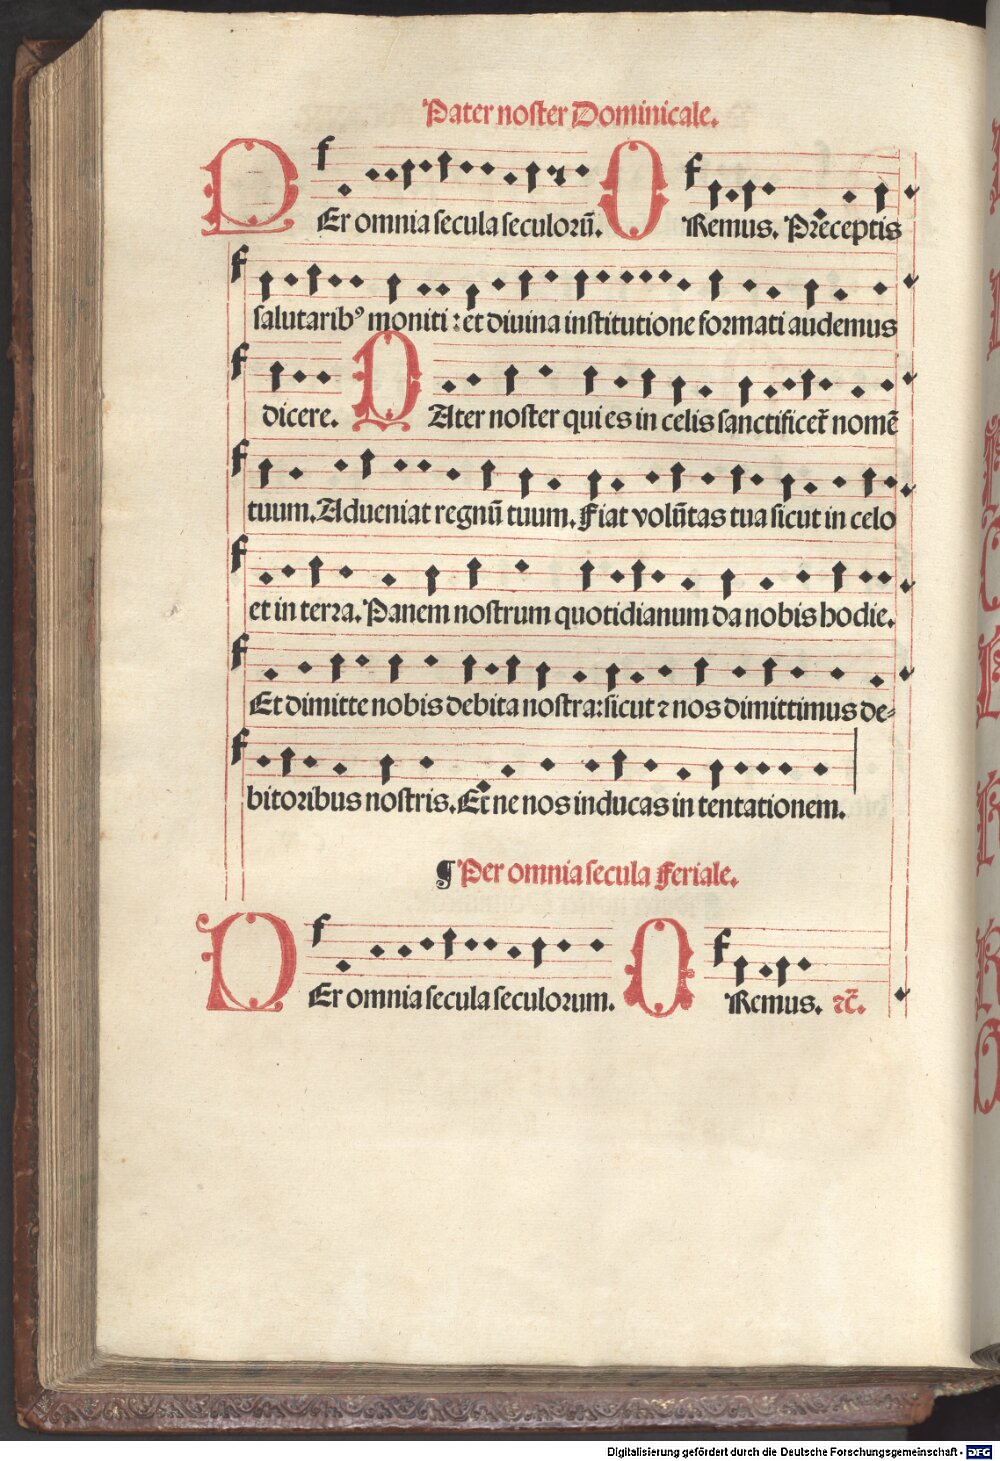 Pater noster Dominicale.
PEr omnia secula seculorū. ORemus. Preceptis
salutaribꝰ moniti : et diuina institutione formati audemus
dicere. PAter noster qui es in celis sanctificet᷑ nomē
tuum. Adueniat regnū tuum. Fiat volūtas tua sicut in celo
et in terra. Panem nostrum quotidianum da nobis hodie.
Et dimitte nobis debita nostra: sicut ⁊ nos dimittimus de⸗
bitoribus nostris. Et ne nos inducas in tentationem.
¶ Per omnia secula Feriale.
PEr omnia secula seculorum. ORemus. ⁊c̄.
Digitalisierung gefördert durch die Deutsche Forschungsgemeinschaft - DFG